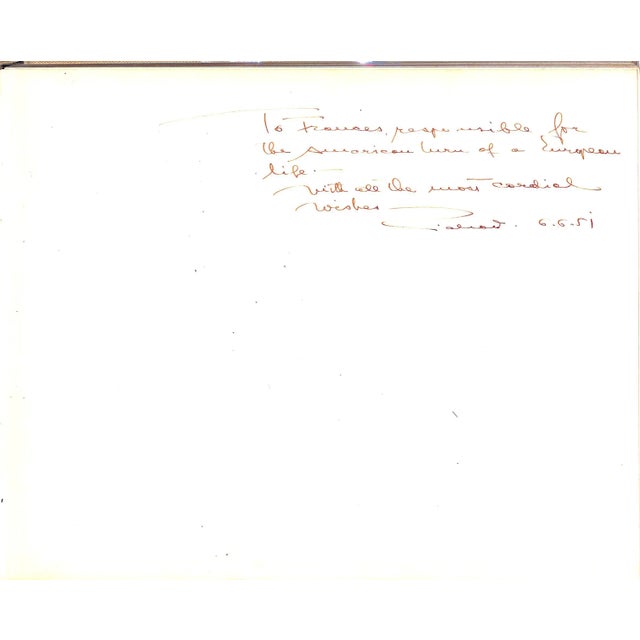 To Frances, responsible for
the American turn of a European
life.
With all the most cordial
Wishes
6.6.51